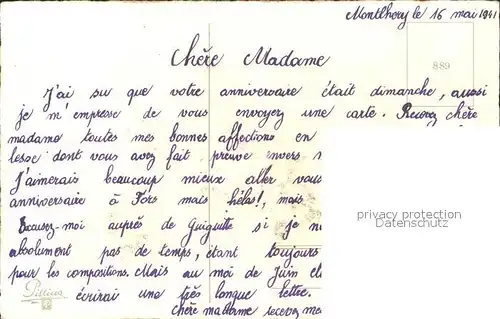 Montlhéry le 16 mai 1941
889
Chère Madame
J'ai su que votre anniversaire était dimanche, aussi
je m'empresse de vous envoyez une carte. Recevez chère
madame toutes mes bonnes affections en
lesse dont vous avez fait preuve envers
J'aimerais beaucoup mieux aller vous
anniversaire à Fors mais hélas!, mais
Excusez-moi auprès de Guiguitte si je
absolument pas de temps, étant toujours
pour les compositions. Mais au moi de Juin
écrirai une très longue lettre.
chère madame recevez
privacy protection
Datenschutz